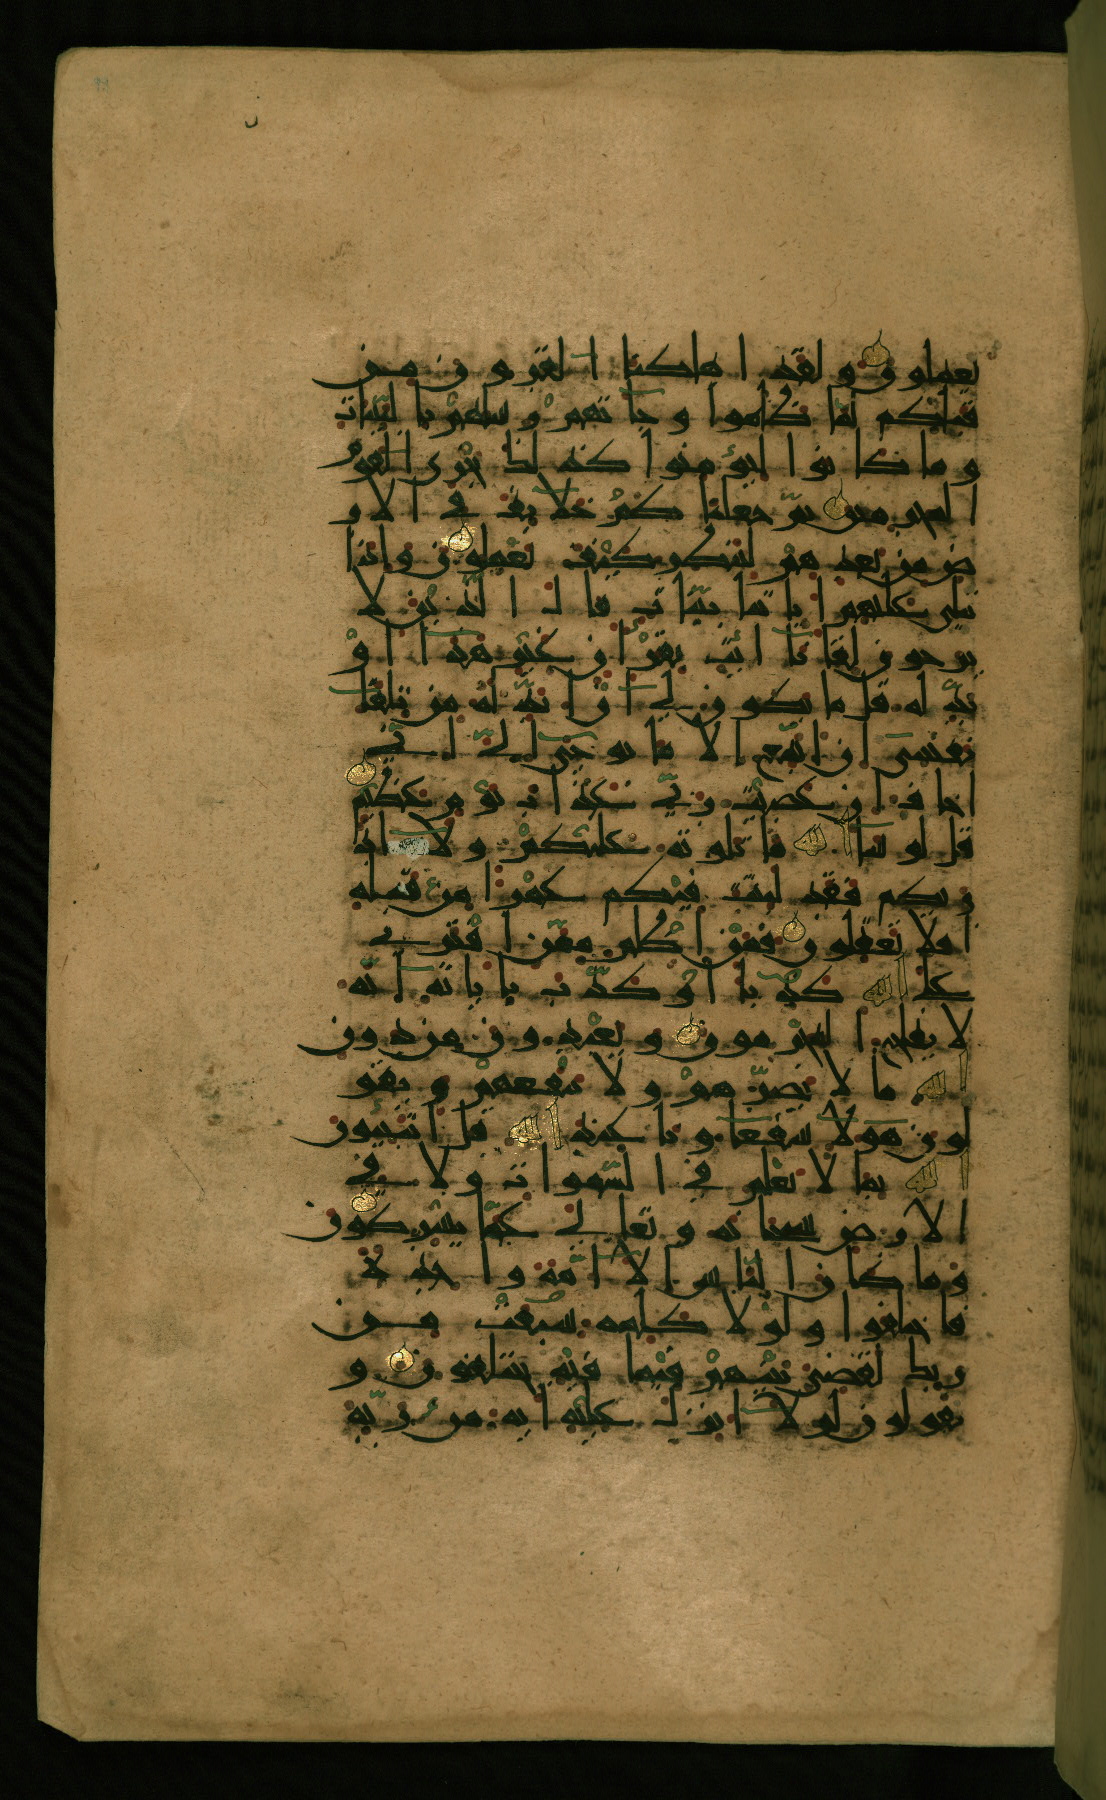 يعملون ولقد اهلكنا القرون من
قبلكم لما ظلموا وجاتهم رسلهم بالبينات
وما كانوا ليؤمنوا كذلك نجزى القوم
المجرمين ثم جعلناكم خلايف في الار
ض من بعدهم لننظر كيف تعملون واذا
تتلى عليهم اياتنا بينات قال الذين لا
يرجون لقانا ائت بقران غير هذا او
بدله قل ما يكون لي ان ابدله من تلقا
نفسي ان اتبع الا ما يوحى الي اني
اخاف ان عصيت ربي عذاب يوم عظيم
قل لو شا الله ما تلوته عليكم ولا ادر
يكم به فقد لبثت فيكم عمرا من قبله
افلا تعقلون فمن اظلم ممن افترى
على الله كذبا او كذب باياته انه
لا يفلح المجرمون ويعبدون من دون
الله ما لا يضرهم ولا ينفعهم ويقو
لون هولا شفعاونا عند الله قل اتنبيون
الله بما لا يعلم في السموات ولا في
الارض سبحانه وتعالى عما يشركون
وما كان الناس الا امة واحدة
فاختلفوا ولولا كلمة سبقت من
ربك لقضي بينهم فيما فيه يختلفون و
يقولون لولا انزل عليه اية من ربه